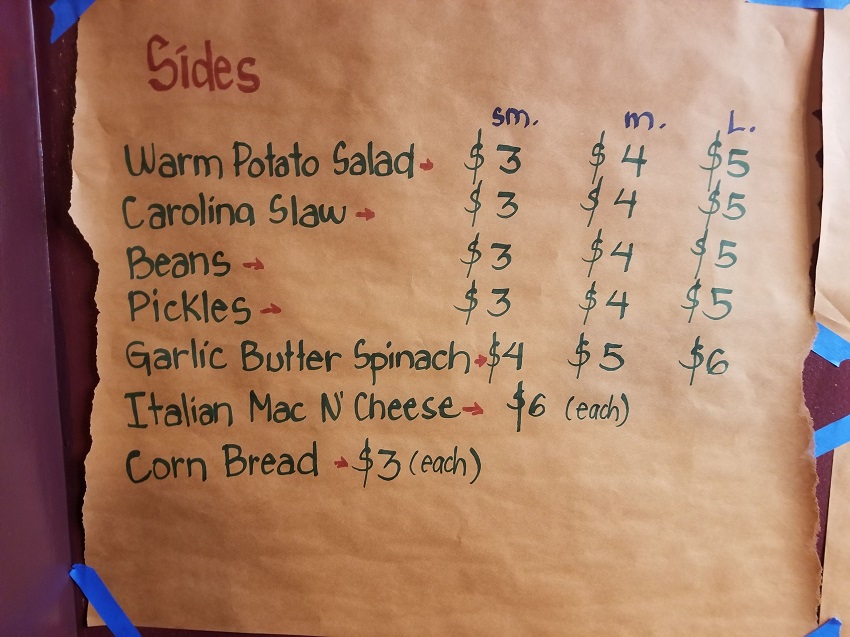 Sides
sm. m. L.
Warm Potato Salad → $3 $4 $5
Carolina Slaw → $3 $4 $5
Beans → $3 $4 $5
Pickles → $3 $4 $5
Garlic Butter Spinach → $4 $5 $6
Italian Mac N' Cheese → $6 (each)
Corn Bread → $3 (each)